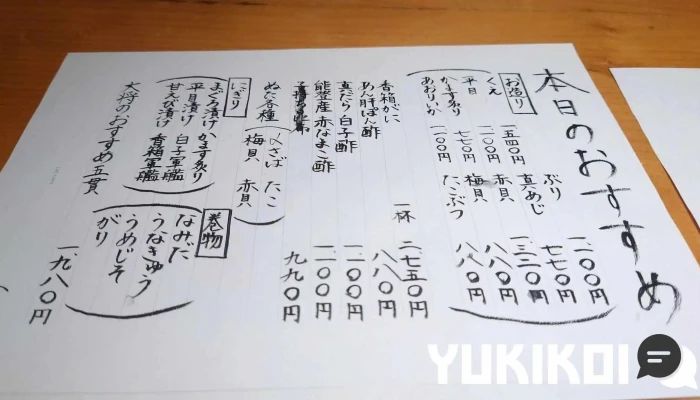 本日のおすすめ
お造り
くえ 一、五四〇円
平目 一、一〇〇円
かます炙り 七七〇円
あおりいか 一、一〇〇円
ぶり 一、一〇〇円
真あじ 七七〇円
赤貝 一、三二〇円
梅貝 八八〇円
たこぶつ 八八〇円
香箱がに 一杯 二、七五〇円
あん肝ぽん酢 八八〇円
真だら白子酢 一、一〇〇円
能登産赤なまこ酢 一、一〇〇円
ぬた各種 九九〇円
〆さば たこ
梅貝 赤貝
にぎり
まぐろ漬け かます炙り
平目漬け 白子軍艦
甘えび漬け 香箱軍艦
大将のおすすめ五貫 一、九八〇円
巻物
なみだ
うなきゅう
うめじそ
がり
YUKIKOI